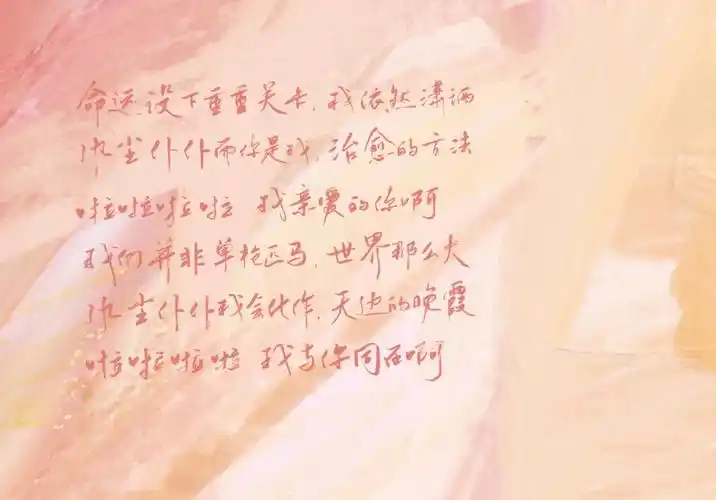 命运设下重重关卡,我依然潇洒
风尘仆仆而你是我,治愈的方法
啦啦啦啦 我亲爱的你啊
我们并非单枪匹马,世界那么大
风尘仆仆我会化作,天边的晚霞
啦啦啦啦 我与你同在啊